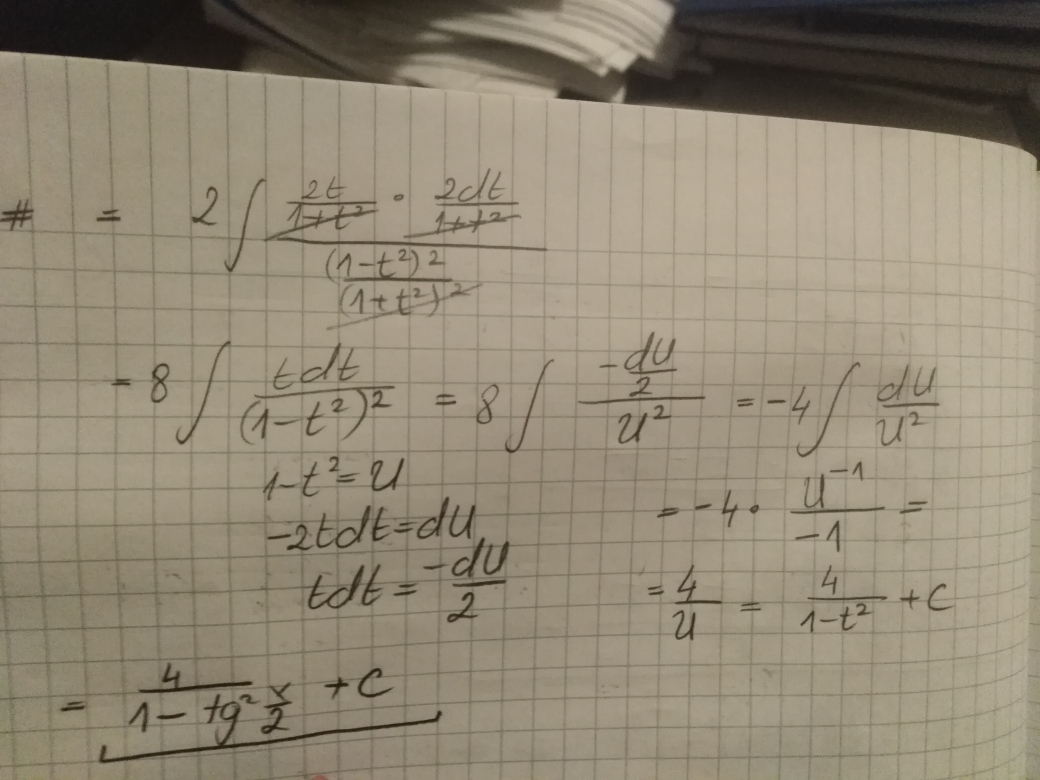 # = 2 ∫ ((2t/(1+t²)) · (2dt/(1+t²))) / ((1-t²)²/(1+t²)²)
= 8 ∫ tdt/(1-t²)² = 8 ∫ (-du/2)/u² = -4 ∫ du/u²
1-t² = u
-2tdt = du
tdt = -du/2
= -4 · u⁻¹/-1 =
= 4/u = 4/(1-t²) + C
= 4/(1 - tg² x/2) + C